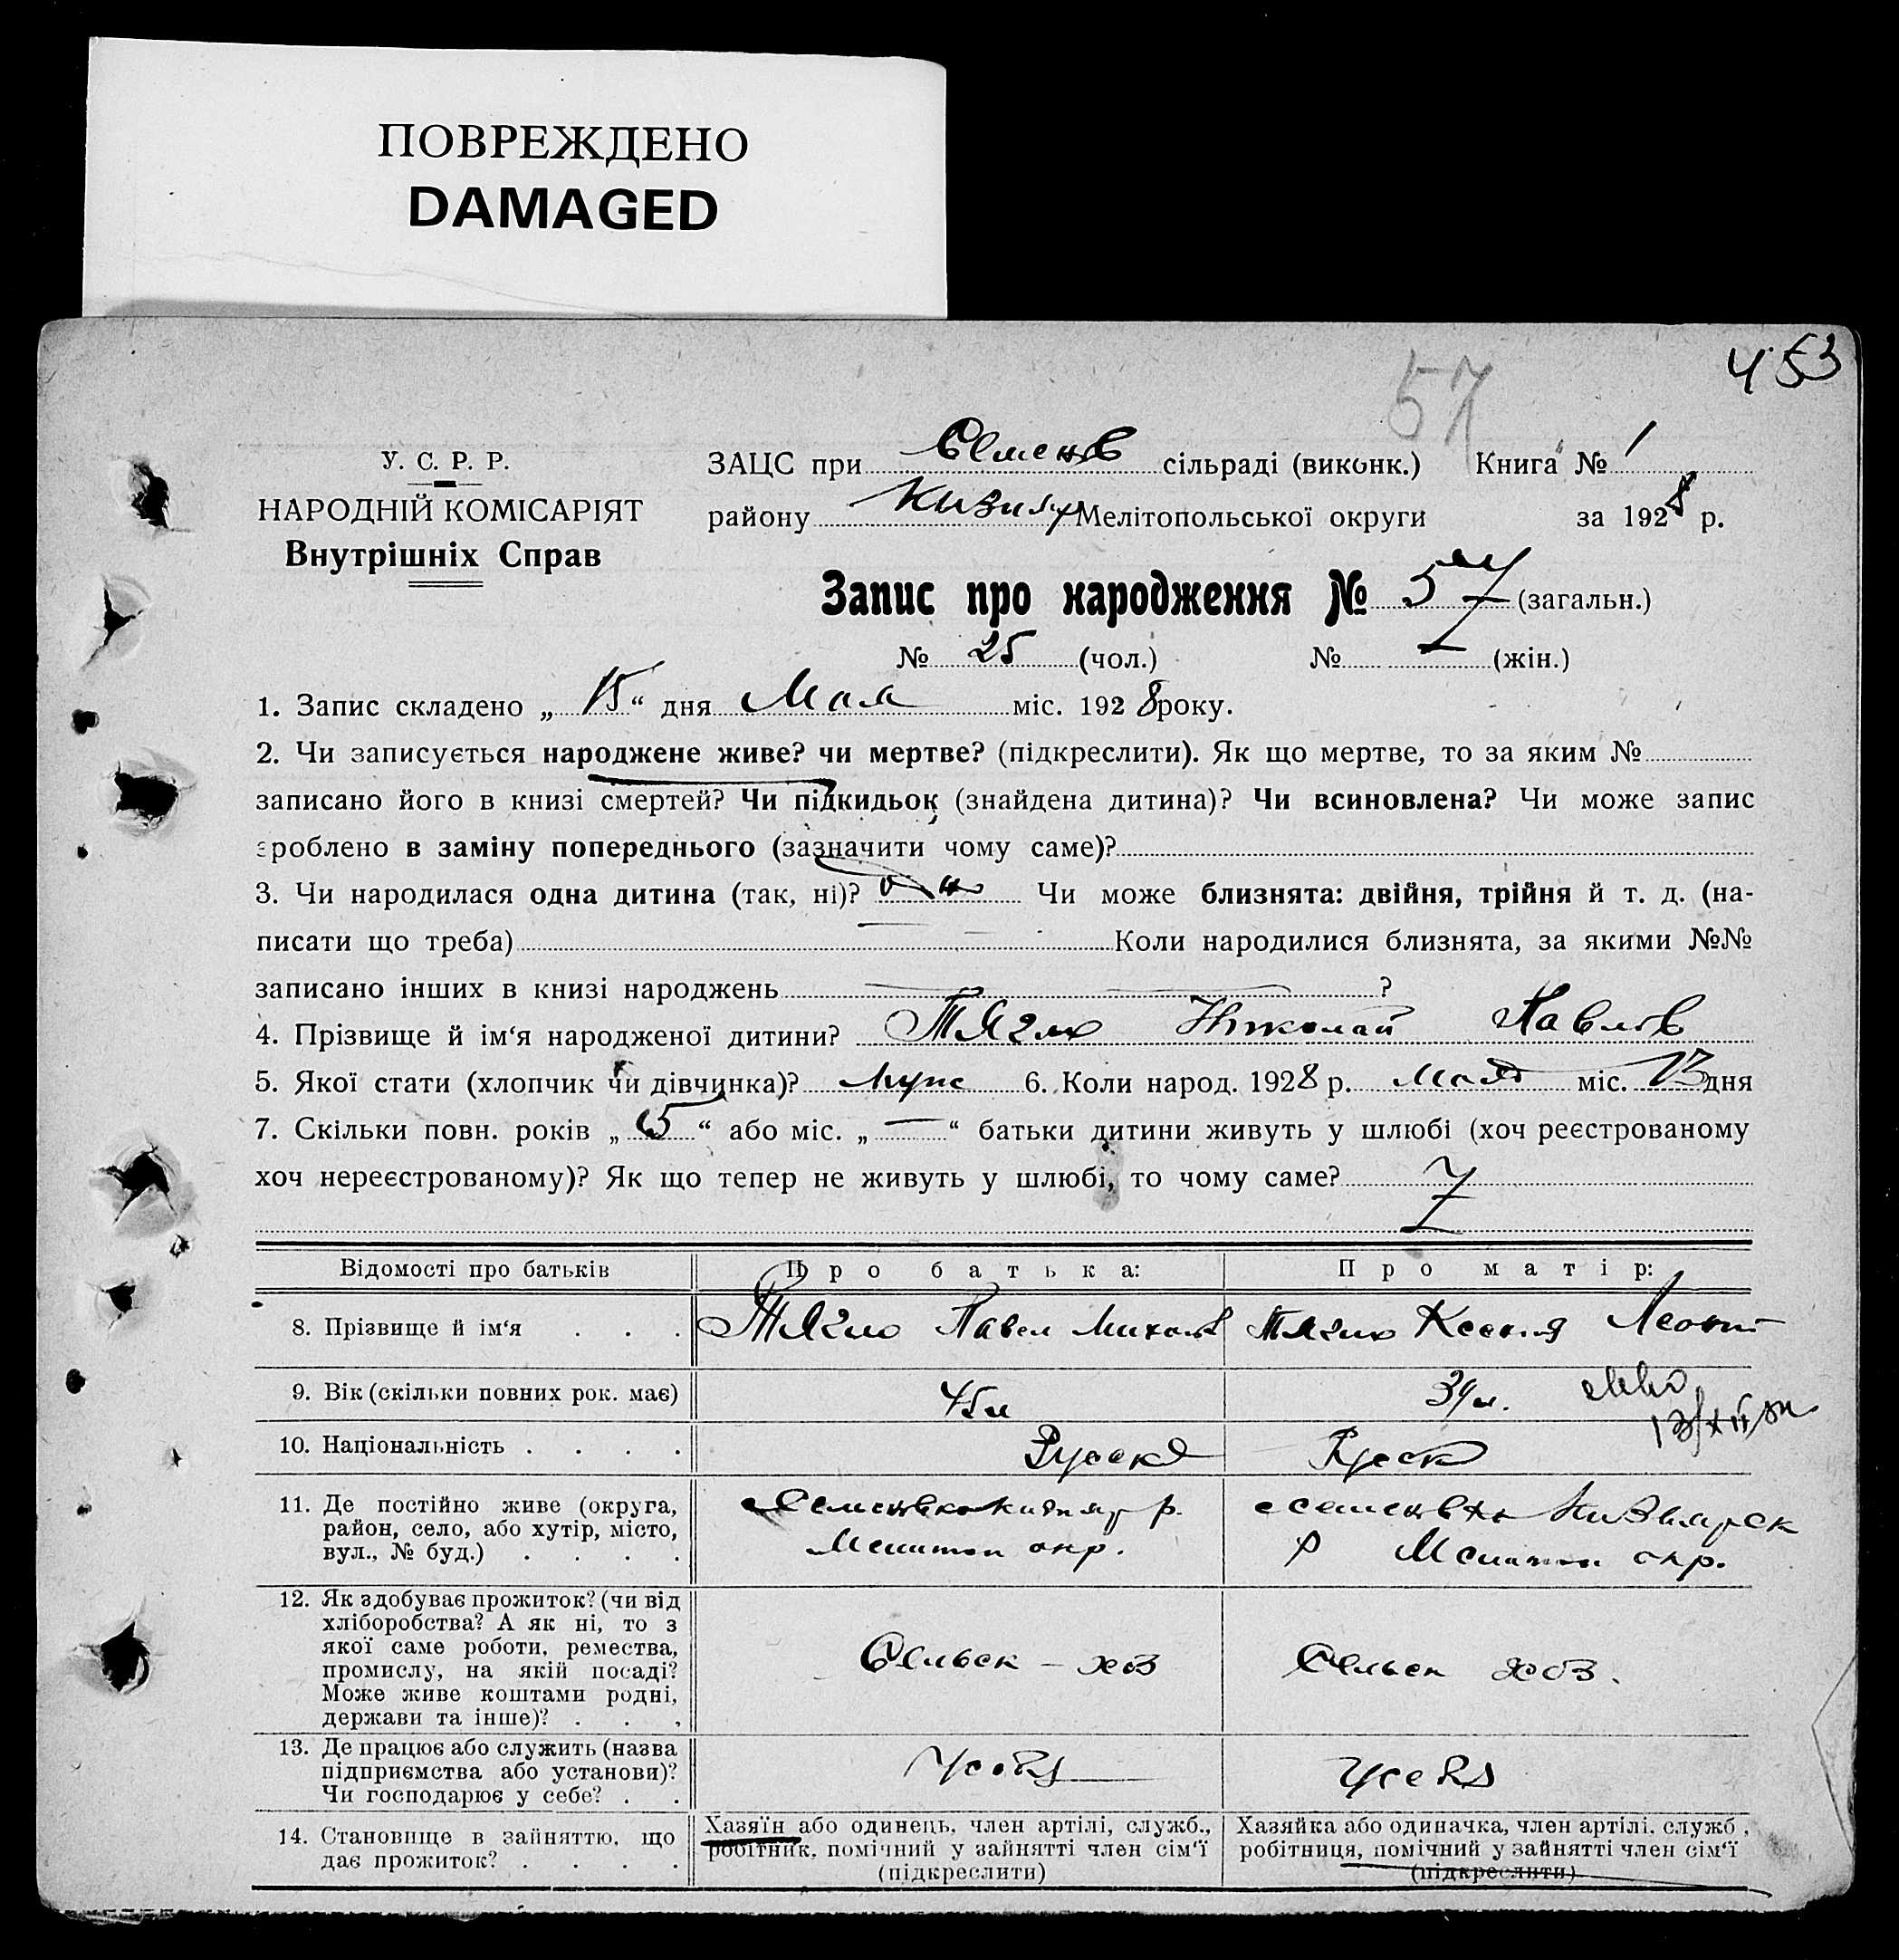 ПОВРЕЖДЕНО
DAMAGED
453
57
У. С. Р. Р.
НАРОДНІЙ КОМІСАРІЯТ
Внутрішніх Справ
ЗАЦС при Семенов сільраді (виконк.) Книга № 1
району Кизияр Мелітопольської округи за 1928 р.
Запис про народження № 57 (загальн.)
№ 25 (чол.) № (жін.)
1. Запис складено „ 15 “ дня Мая міс. 1928 року.
2. Чи записується народжене живе? чи мертве? (підкреслити). Як що мертве, то за яким №
записано його в книзі смертей? Чи підкидьок (знайдена дитина)? Чи всиновлена? Чи може запис
зроблено в заміну попереднього (зазначити чому саме)?
3. Чи народилася одна дитина (так, ні)? Чи може близнята: двійня, трійня й т. д. (на-
писати що треба) Коли народилися близнята, за якими №№
записано інших в книзі народжень ?
4. Прізвище й ім‘я народженої дитини? Тягло Николай Павлов
5. Якої стати (хлопчик чи дівчинка)? муж 6. Коли народ. 1928 р. мая міс. 13 дня
7. Скільки повн. років „ 5 “ або міс. „ — “ батьки дитини живуть у шлюбі (хоч реєстрованому
хоч нереєстрованому)? Як що тепер не живуть у шлюбі, то чому саме?
Відомості про батьків Про батька: Про матір:
8. Прізвище й ім‘я . . . Тягло Павел Михайл Тягло Ксения Леонт
9. Вік (скільки повних рок. має) 45 л 39 л.
10. Національність . . . . Руский Руск
11. Де постійно живе (округа,
район, село, або хутір, місто,
вул., № буд.) . . . .
с Семеновка Кизияр р.
Мелитоп окр.
с Семеновка Кизиярск
р Мелитоп окр.
12. Як здобуває прожиток? (чи від
хліборобства? А як ні, то з
якої саме роботи, ремества,
промислу, на якій посаді?
Може живе коштами родні,
держави та інше)? . . .
Сельск - хоз
Сельск хоз.
13. Де працює або служить (назва
підприємства або установи)?
Чи господарює у себе? . .
У себя
У себя
14. Становище в зайняттю, що
дає прожиток? . . . .
Хазяїн або одинець, член артілі, служб.,
робітник, помічний у зайнятті член сім‘ї
(підкреслити)
Хазяйка або одиначка, член артілі, служб.,
робітниця, помічний у зайнятті член сім‘ї
(підкреслити)